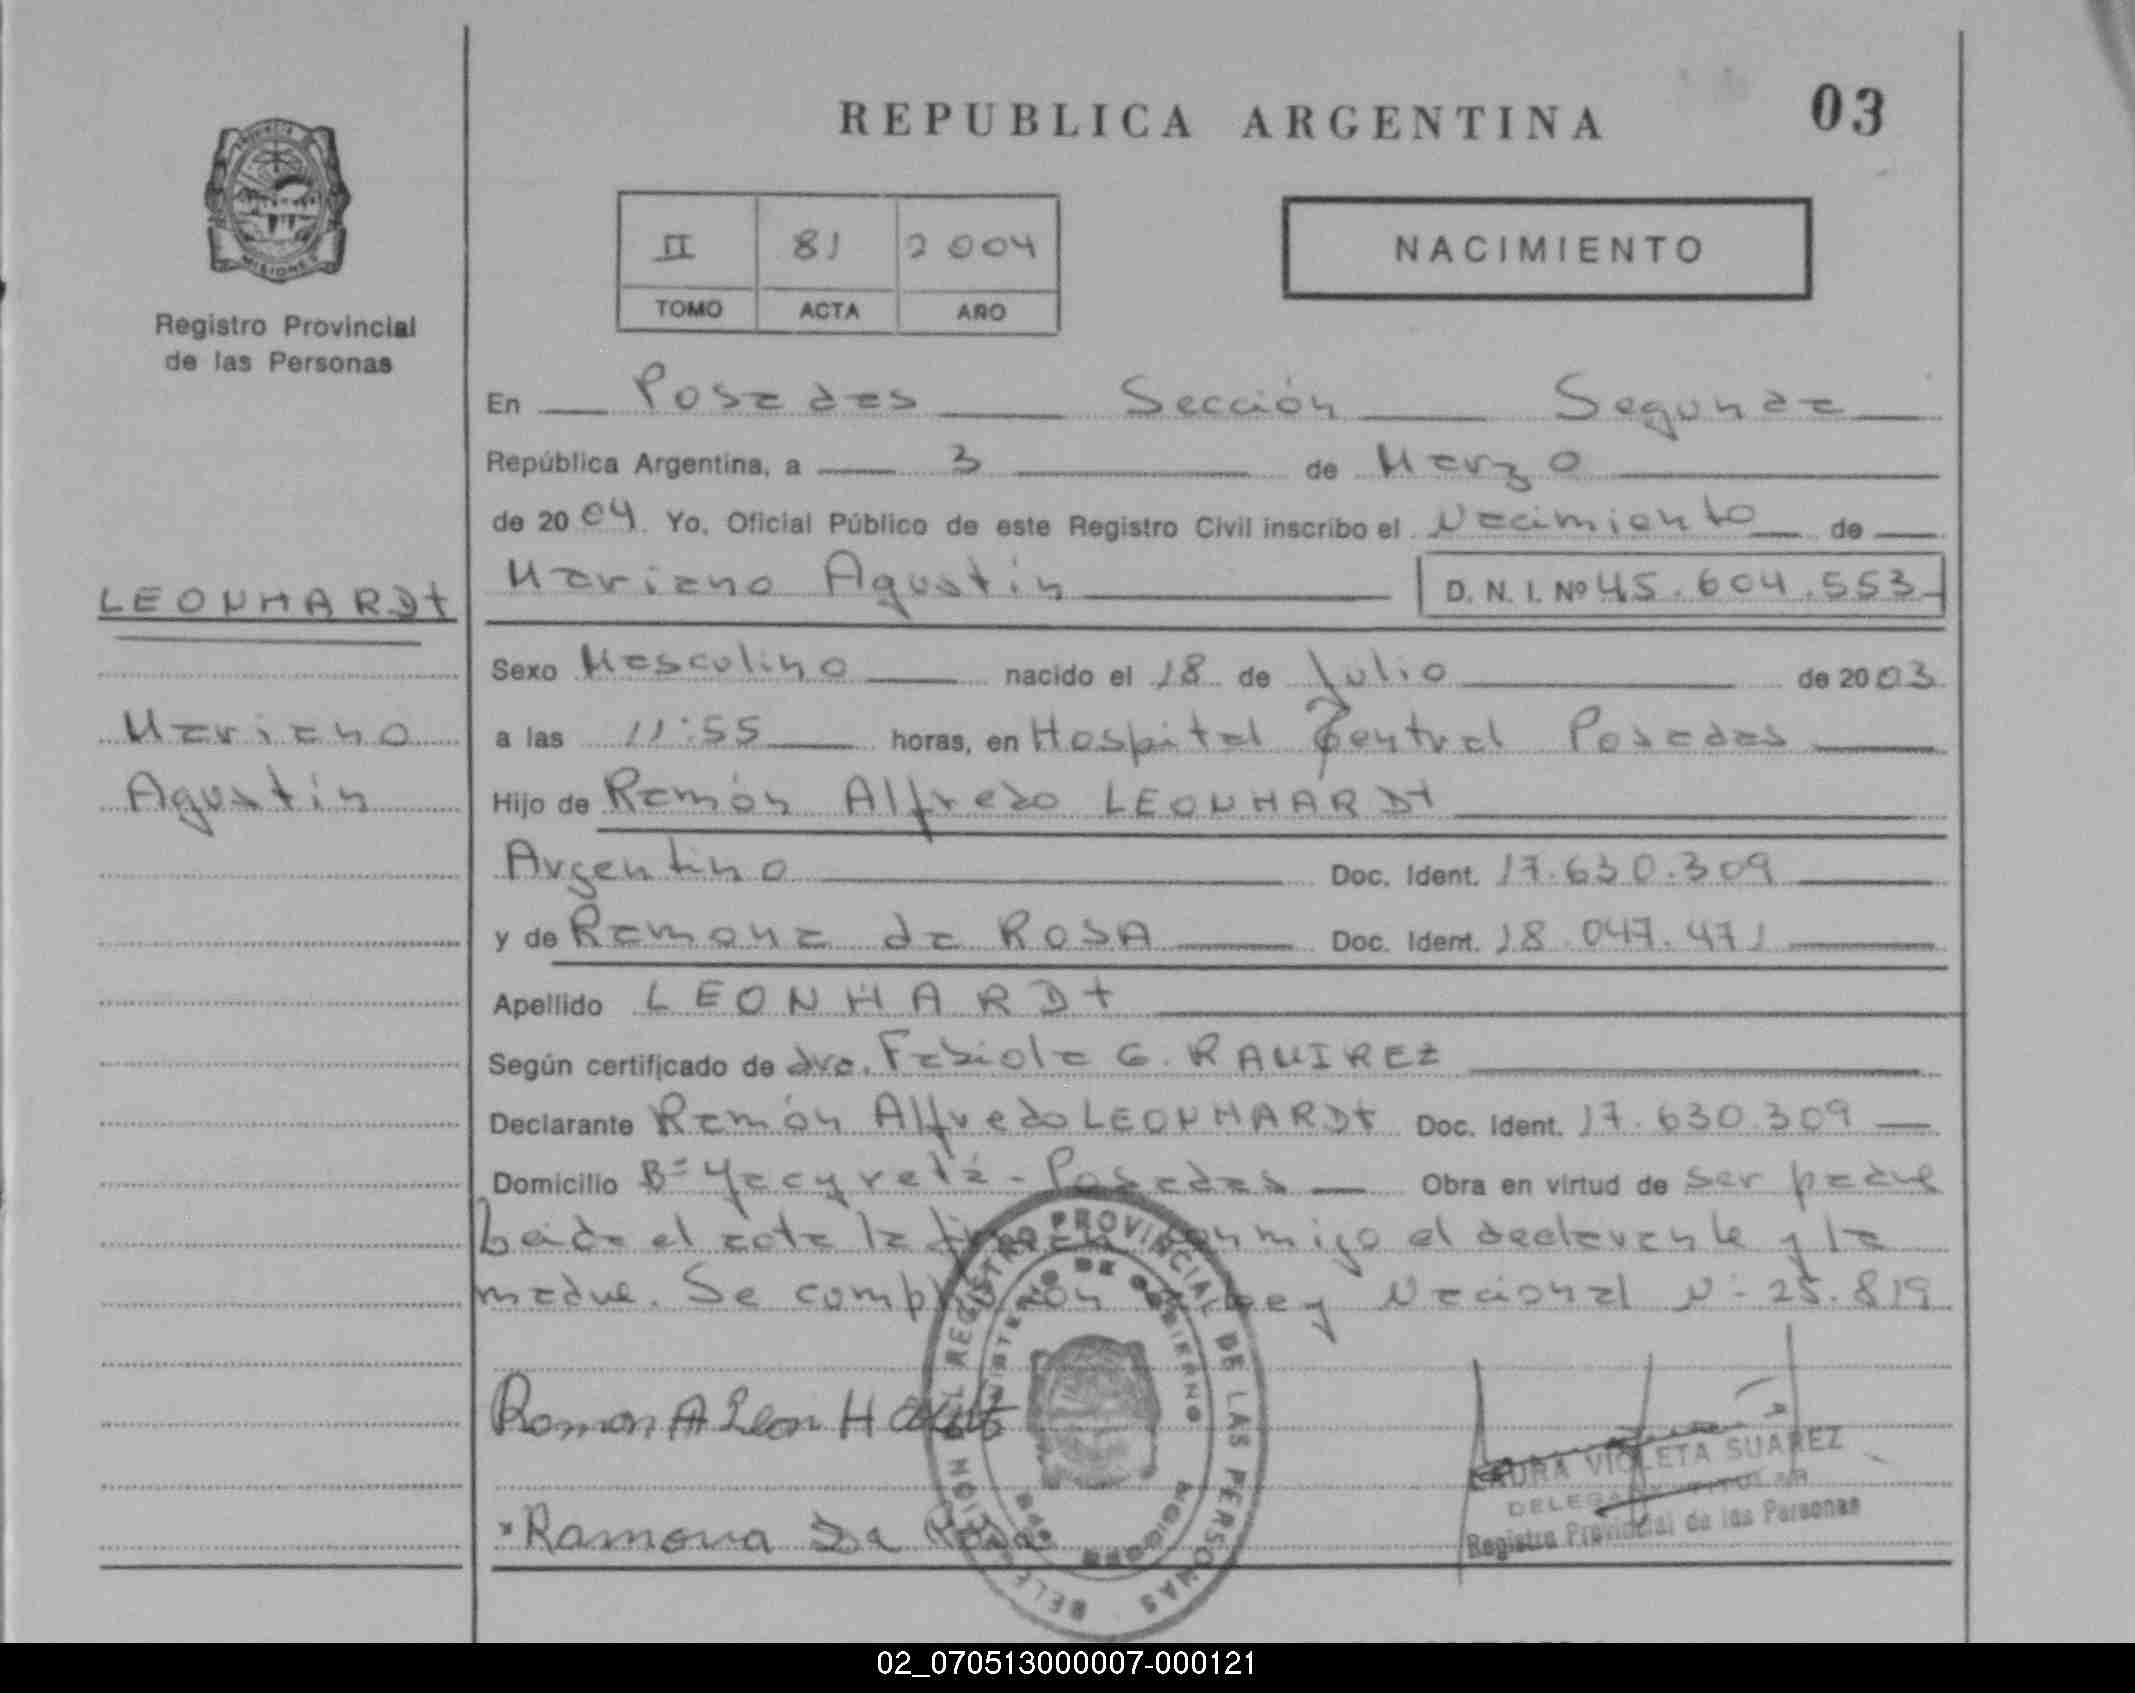 REPUBLICA ARGENTINA
03
PROVINCIA
MISIONES
Registro Provincial
de las Personas
II 81 2004
TOMO ACTA AÑO
NACIMIENTO
En Posadas Sección Segunda
República Argentina, a 3 de Marzo
de 2004. Yo, Oficial Público de este Registro Civil inscribo el Nacimiento de
Mariano Agustín D. N. I. Nº 45.604.553
LEONHARDt
Mariano
Agustín
Sexo Masculino nacido el 18 de Julio de 2003
a las 11:55 horas, en Hospital Central Posadas
Hijo de Ramón Alfredo LEONHARDt
Argentino Doc. Ident. 17.630.309
y de Ramona da ROSA Doc. Ident. 18.047.471
Apellido LEONHARDt
Según certificado de dra. Fabiola G. RAMIREZ
Declarante Ramón Alfredo LEONHARDt Doc. Ident. 17.630.309
Domicilio Bº Yacyretá - Posadas Obra en virtud de ser padre
Leída el acta la conmigo el declarante y la
madre. Se Ley Nacional Nº 25.819
Ramon A Leon Hardt
Ramona Da Rosa
REGISTRO PROVINCIAL DE LAS PERSONAS
MINISTERIO DE GOBIERNO
MISIONES
LAURA VIOLETA SUAREZ
Registro Provincial de las Personas
02_070513000007-000121